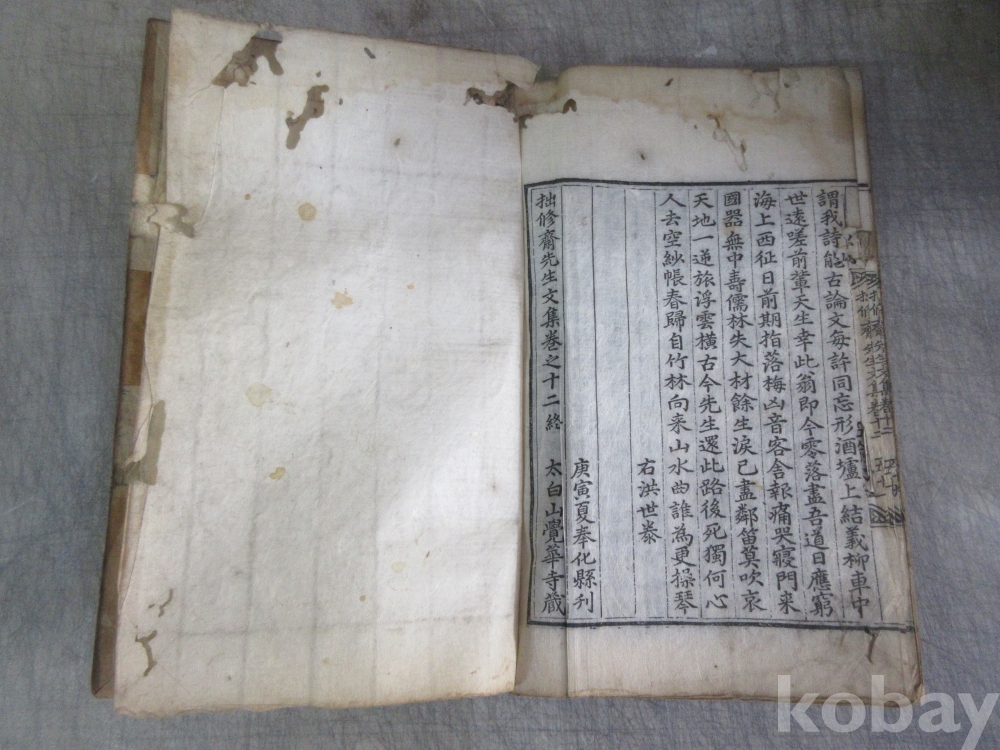 謂我詩能古論文每許同忘形酒壚上結義柳車中
世遠嗟前輩天生幸此翁即今零落盡吾道日應窮
海上西征日前期指落梅凶音客舍報痛哭寢門来
國器無中壽儒林失大材餘生淚已盡鄰笛莫吹哀
天地一逆旅浮雲橫古今先生還此路後死獨何心
人去空紗帳春歸自竹林向来山水曲誰為更操琴
右洪世泰
庚寅夏奉化縣刊
拙修齋先生文集卷之十二終 太白山覺華寺藏
kobay